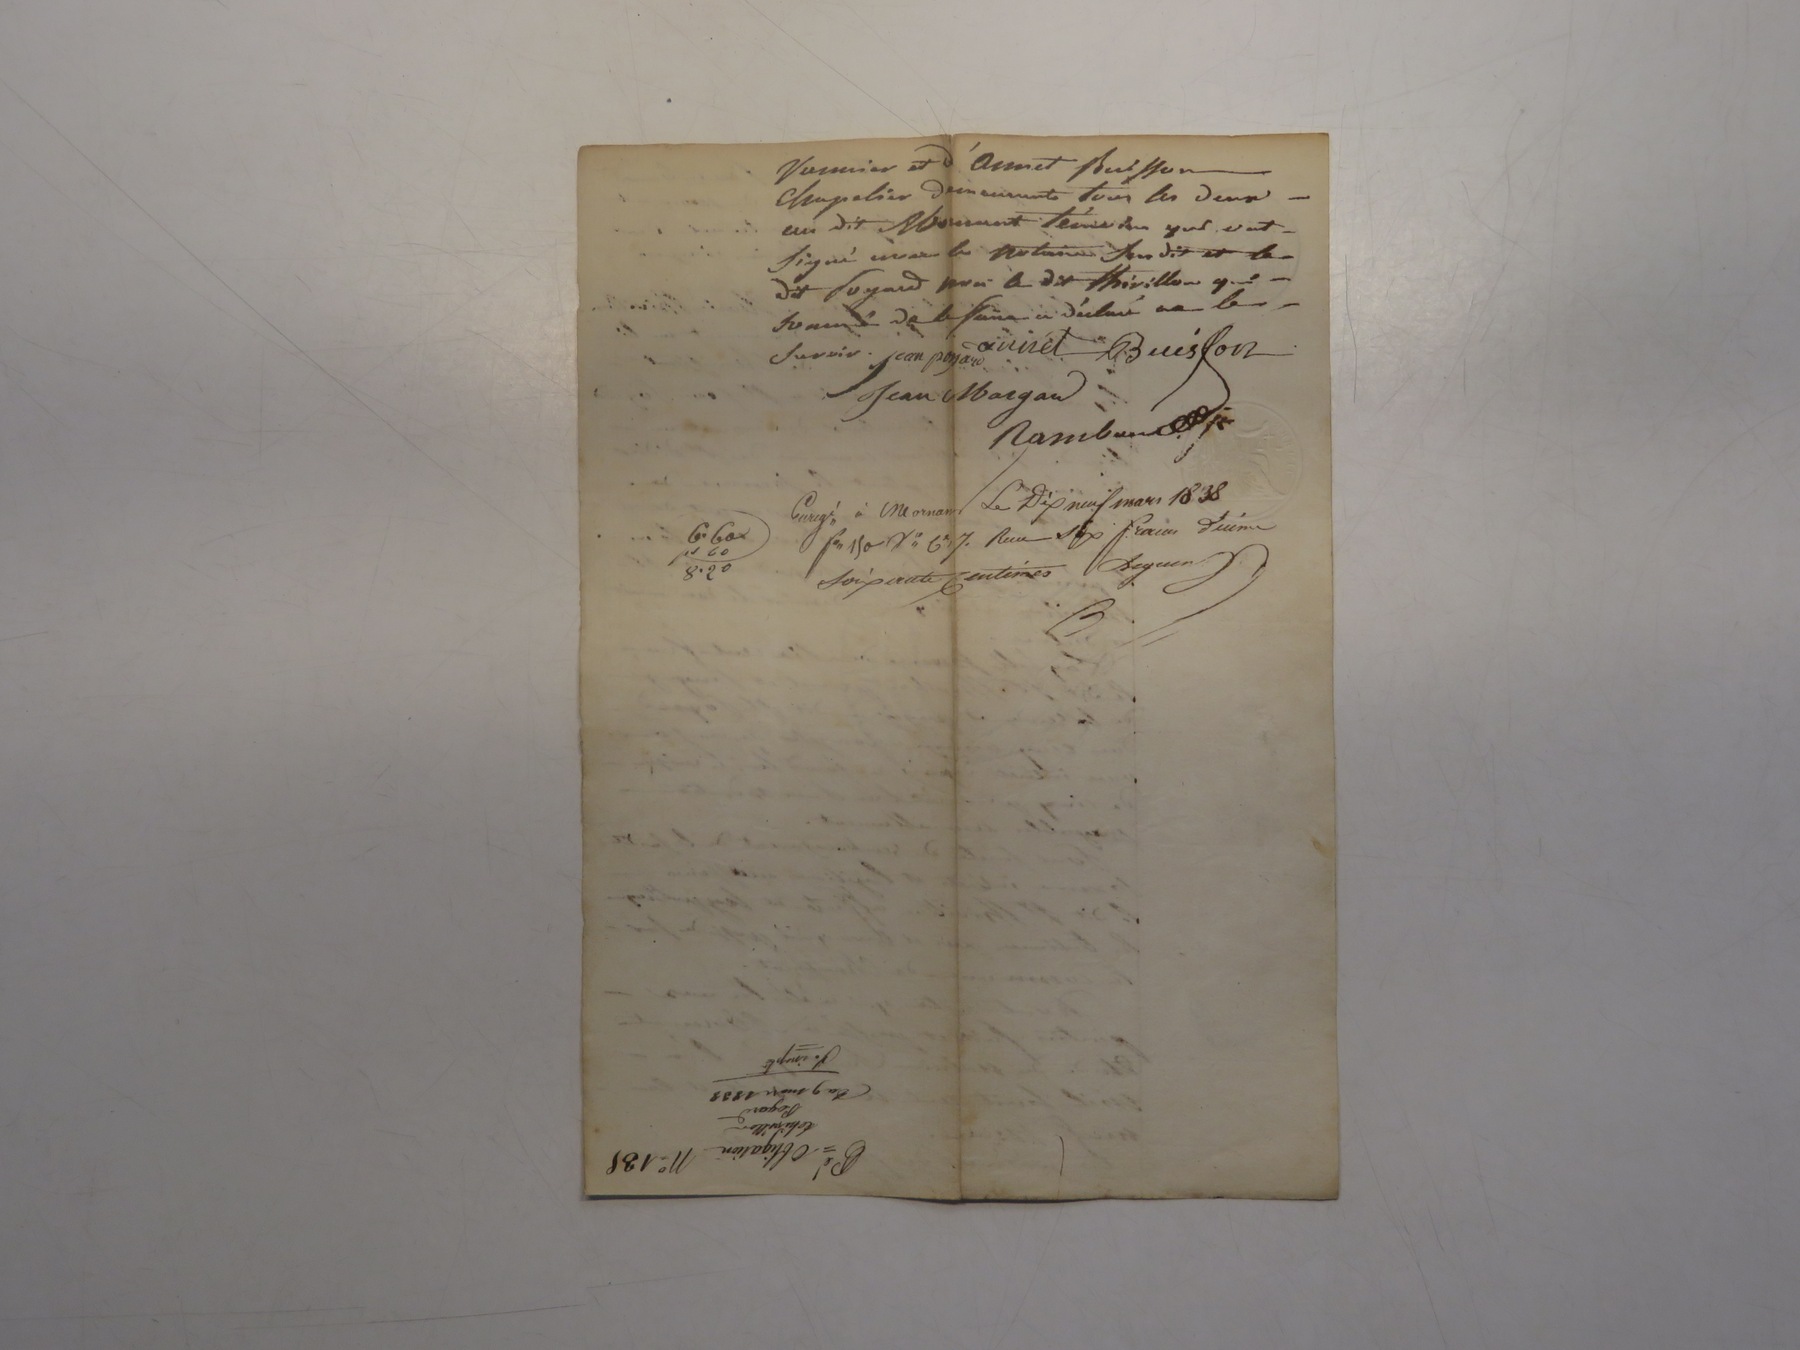 et d'Annet Buisson
Chapelier demeurants tous les deux
au dit Mornant témoins qui ont
signé avec le notaire susdit et le
dit poyard non le dit thivillon qui
de le faire a déclaré ne le
savoir. jean poyard annet Buisson
Jean Morgan
Enregé à Mornant Le Dix neuf mars 1838
fo 150 Vo Ce 7. Reçu Six francs décime
Soixante Centimes Seguin
6.60
60
8.20
Bd Obligation No 138
thivillon
Poyard
Du 9 mars 1838